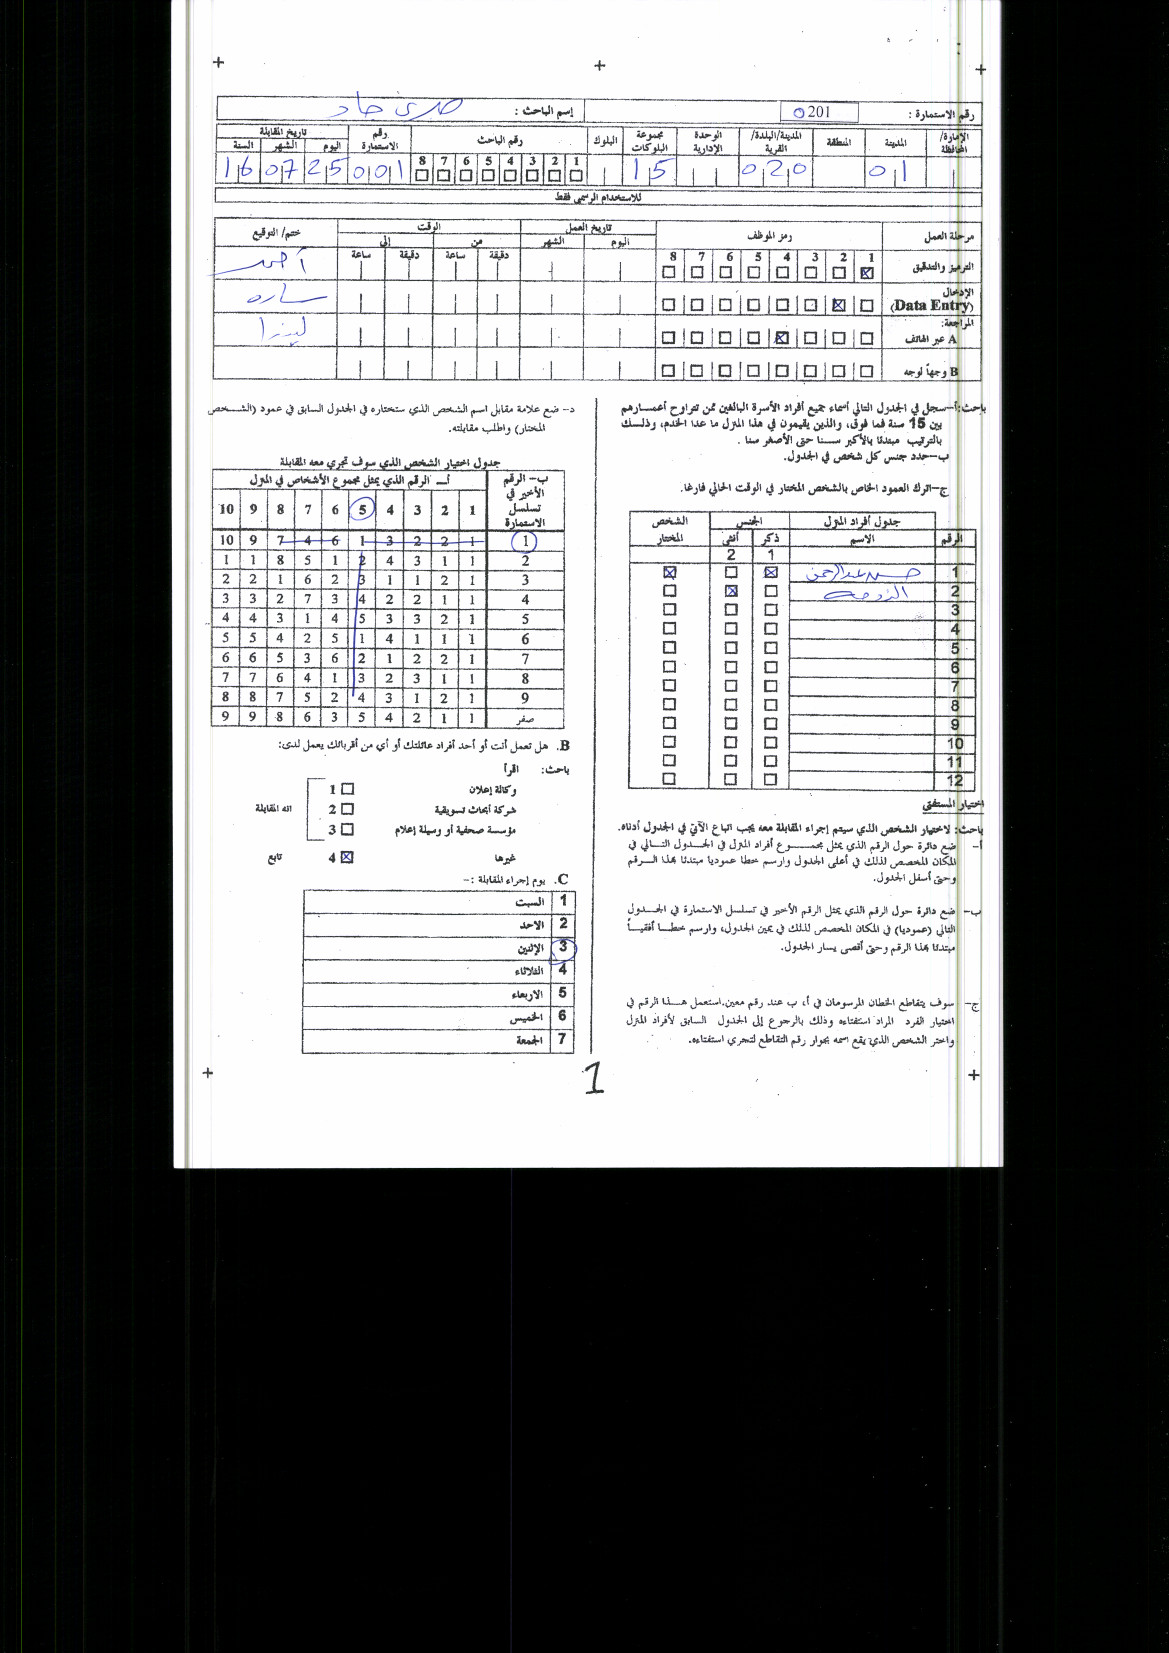 رقم الاستمارة : 0201 إسم الباحث :
الإمارة/المحافظة المدينة المنطقة المدينة/البلدة/القرية الوحدة الإدارية مجموعة البلوكات البلوك رقم الباحث رقم الاستمارة تاريخ المقابلة
اليوم الشهر السنة
1 2 3 4 5 6 7 8
01 020 15 001 25 07 16
للاستخدام الرسمي فقط
مرحلة العمل رمز الموظف تاريخ العمل الوقت ختم/ التوقيع
اليوم الشهر من إلى
1 2 3 4 5 6 7 8 دقيقة ساعة دقيقة ساعة
الترميز والتدقيق أحمد
الإدخال
(Data Entry) ساره
المراجعة:
A عبر الهاتف
B وجهاً لوجه
باحث: أ–سجل في الجدول التالي أسماء جميع أفراد الأسرة البالغين ممن تتراوح أعمـــارهم
بين 15 سنة فما فوق، والذين يقيمون في هذا المنزل ما عدا الخدم، وذلـــك
بالترتيب مبتدئا بالأكبر ســـنا حتى الأصغر سنا .
ب–حدد جنس كل شخص في الجدول.
ج–اترك العمود الخاص بالشخص المختار في الوقت الحالي فارغا.
جدول أفراد المنزل الجنس الشخص المختار
الرقم الاسم ذكر أنثى
1 2
1 حسن عبدالرحمن
2 الزوجة
3
4
5
6
7
8
9
10
11
12
اختيار المستفتى
باحث: لاختيار الشخص الذي سيتم إجراء المقابلة معه يجب اتباع الآتي في الجدول أدناه.
أ– ضع دائرة حول الرقم الذي يمثل مجمـــــوع أفراد المنزل في الجـــدول التـــالي في
المكان المخصص لذلك في أعلى الجدول وارسم خطا عموديا مبتدئا بهذا الـــرقم
وحتى أسفل الجدول.
ب– ضع دائرة حول الرقم الذي يمثل الرقم الأخير في تسلسل الاستمارة في الجـــدول
التالي (عموديا) في المكان المخصص لذلك في يمين الجدول، وارسم خطـــا أفقيـــاً
مبتدئا بهذا الرقم وحتى أقصى يسار الجدول.
ج– سوف يتقاطع الخطان المرسومان في أ، ب عند رقم معين.استعمل هـــذا الرقم في
اختيار الفرد المراد استفتاءه وذلك بالرجوع إلى الجدول السابق لأفراد المنزل
واختر الشخص الذي يقع اسمه بجوار رقم التقاطع لتجري استفتاءه.
د– ضع علامة مقابل اسم الشخص الذي ستختاره في الجدول السابق في عمود (الشـــخص
المختار) واطلب مقابلته.
جدول اختيار الشخص الذي سوف تجري معه المقابلة
ب– الرقم الأخير في تسلسل الاستمارة أ– الرقم الذي يمثل مجموع الأشخاص في المنزل
10 9 8 7 6 5 4 3 2 1
10 9 7 4 6 1 3 2 2 1 1
1 1 8 5 1 2 4 3 1 1 2
2 2 1 6 2 3 1 1 2 1 3
3 3 2 7 3 4 2 2 1 1 4
4 4 3 1 4 5 3 3 2 1 5
5 5 4 2 5 1 4 1 1 1 6
6 6 5 3 6 2 1 2 2 1 7
7 7 6 4 1 3 2 3 1 1 8
8 8 7 5 2 4 3 1 2 1 9
9 9 8 6 3 5 4 2 1 1 صفر
B. هل تعمل أنت أو أحد أفراد عائلتك أو أي من أقربائك يعمل لدى:
باحث: اقرأ
وكالة إعلان 1
شركة أبحاث تسويقية 2 انه المقابلة
مؤسسة صحفية أو وسيلة إعلام 3
غيرها 4 تابع
C. يوم إجراء المقابلة :–
1 السبت
2 الاحد
3 الإثنين
4 الثلاثاء
5 الاربعاء
6 الخميس
7 الجمعة
1